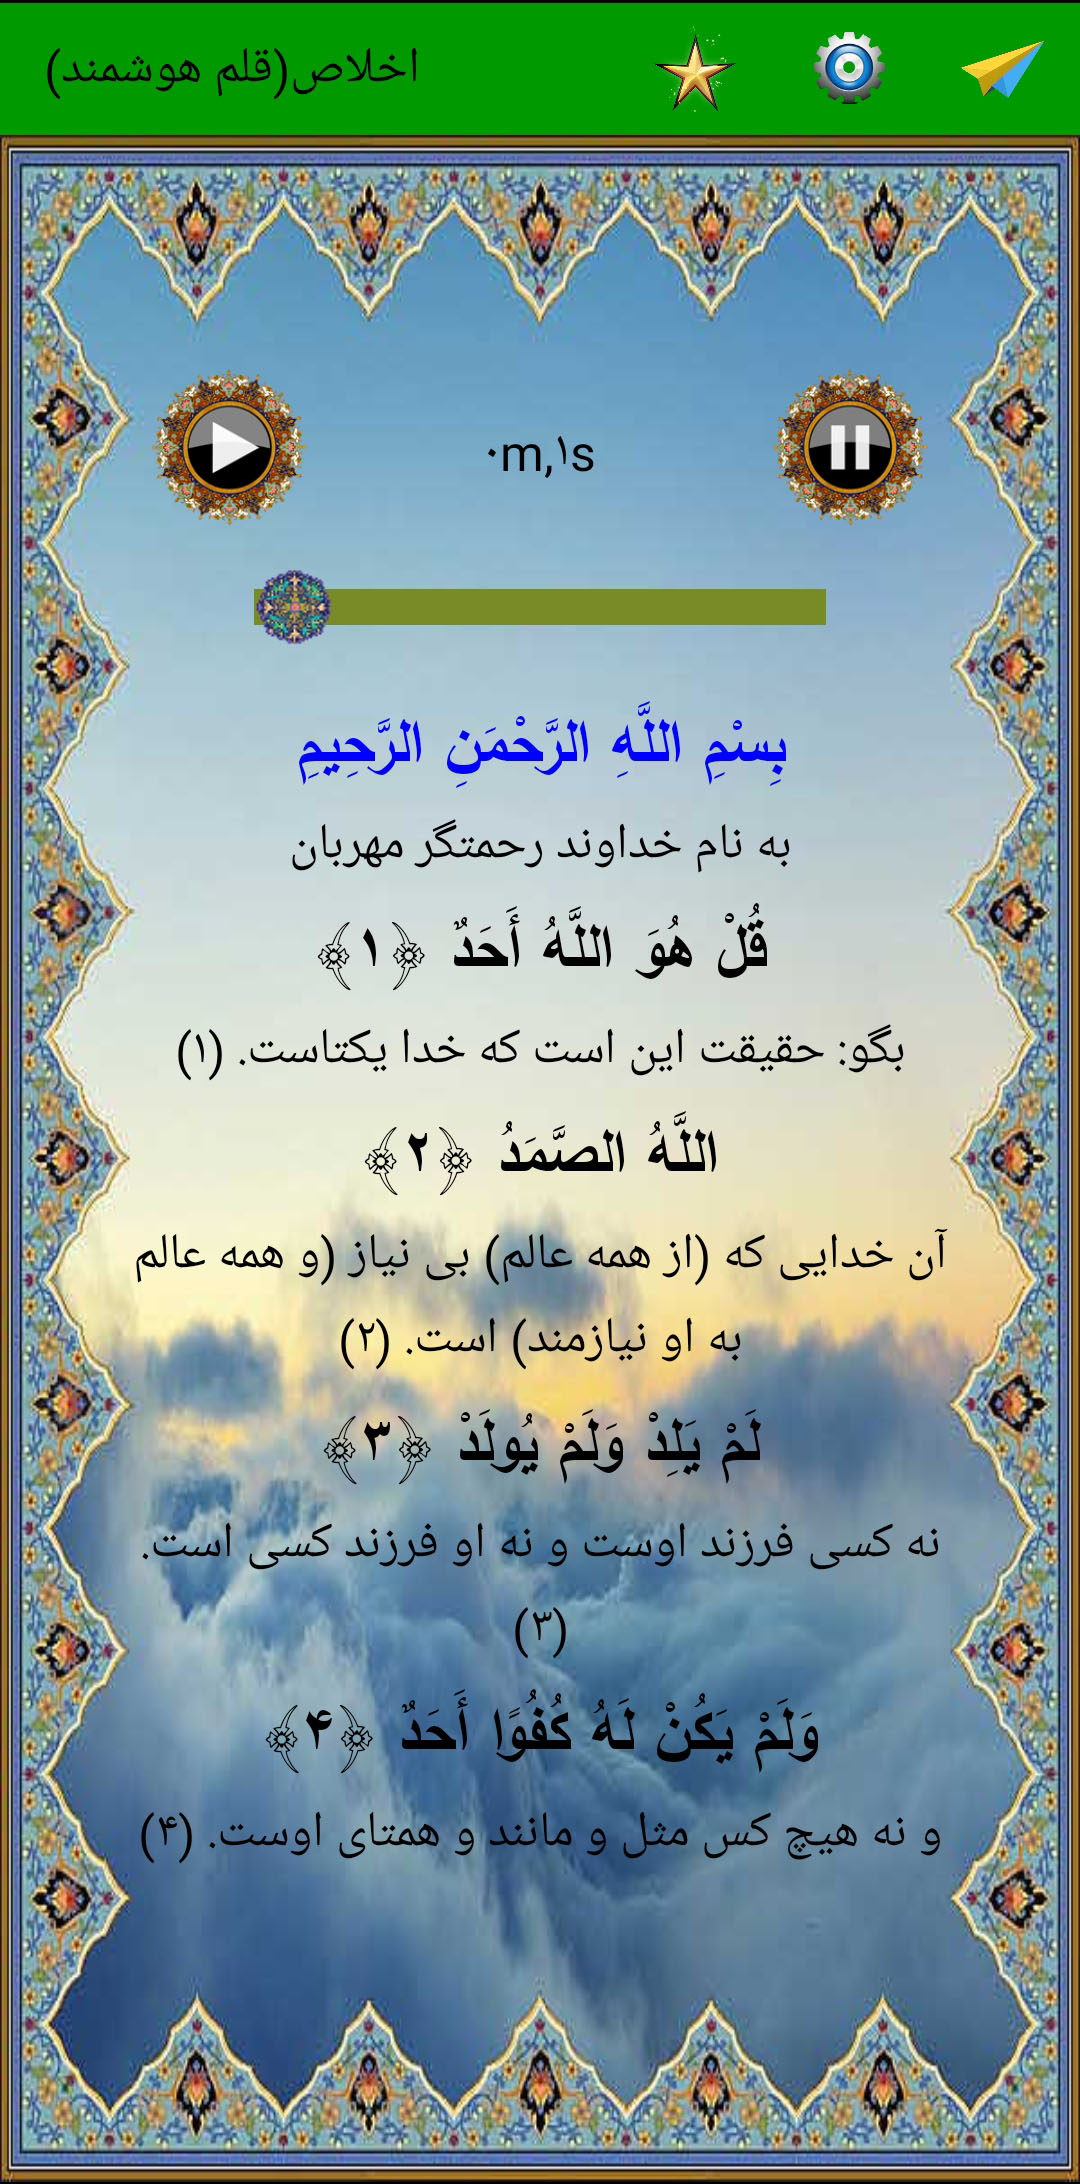 اخلاص(قلم هوشمند)
۰m,۱s
بِسْمِ اللَّهِ الرَّحْمَنِ الرَّحِيمِ
به نام خداوند رحمتگر مهربان
قُلْ هُوَ اللَّهُ أَحَدٌ ﴿۱﴾
بگو: حقیقت این است که خدا یکتاست. (۱)
اللَّهُ الصَّمَدُ ﴿۲﴾
آن خدایی که (از همه عالم) بی نیاز (و همه عالم
به او نیازمند) است. (۲)
لَمْ يَلِدْ وَلَمْ يُولَدْ ﴿۳﴾
نه کسی فرزند اوست و نه او فرزند کسی است.
(۳)
وَلَمْ يَكُنْ لَهُ كُفُوًا أَحَدٌ ﴿۴﴾
و نه هیچ کس مثل و مانند و همتای اوست. (۴)